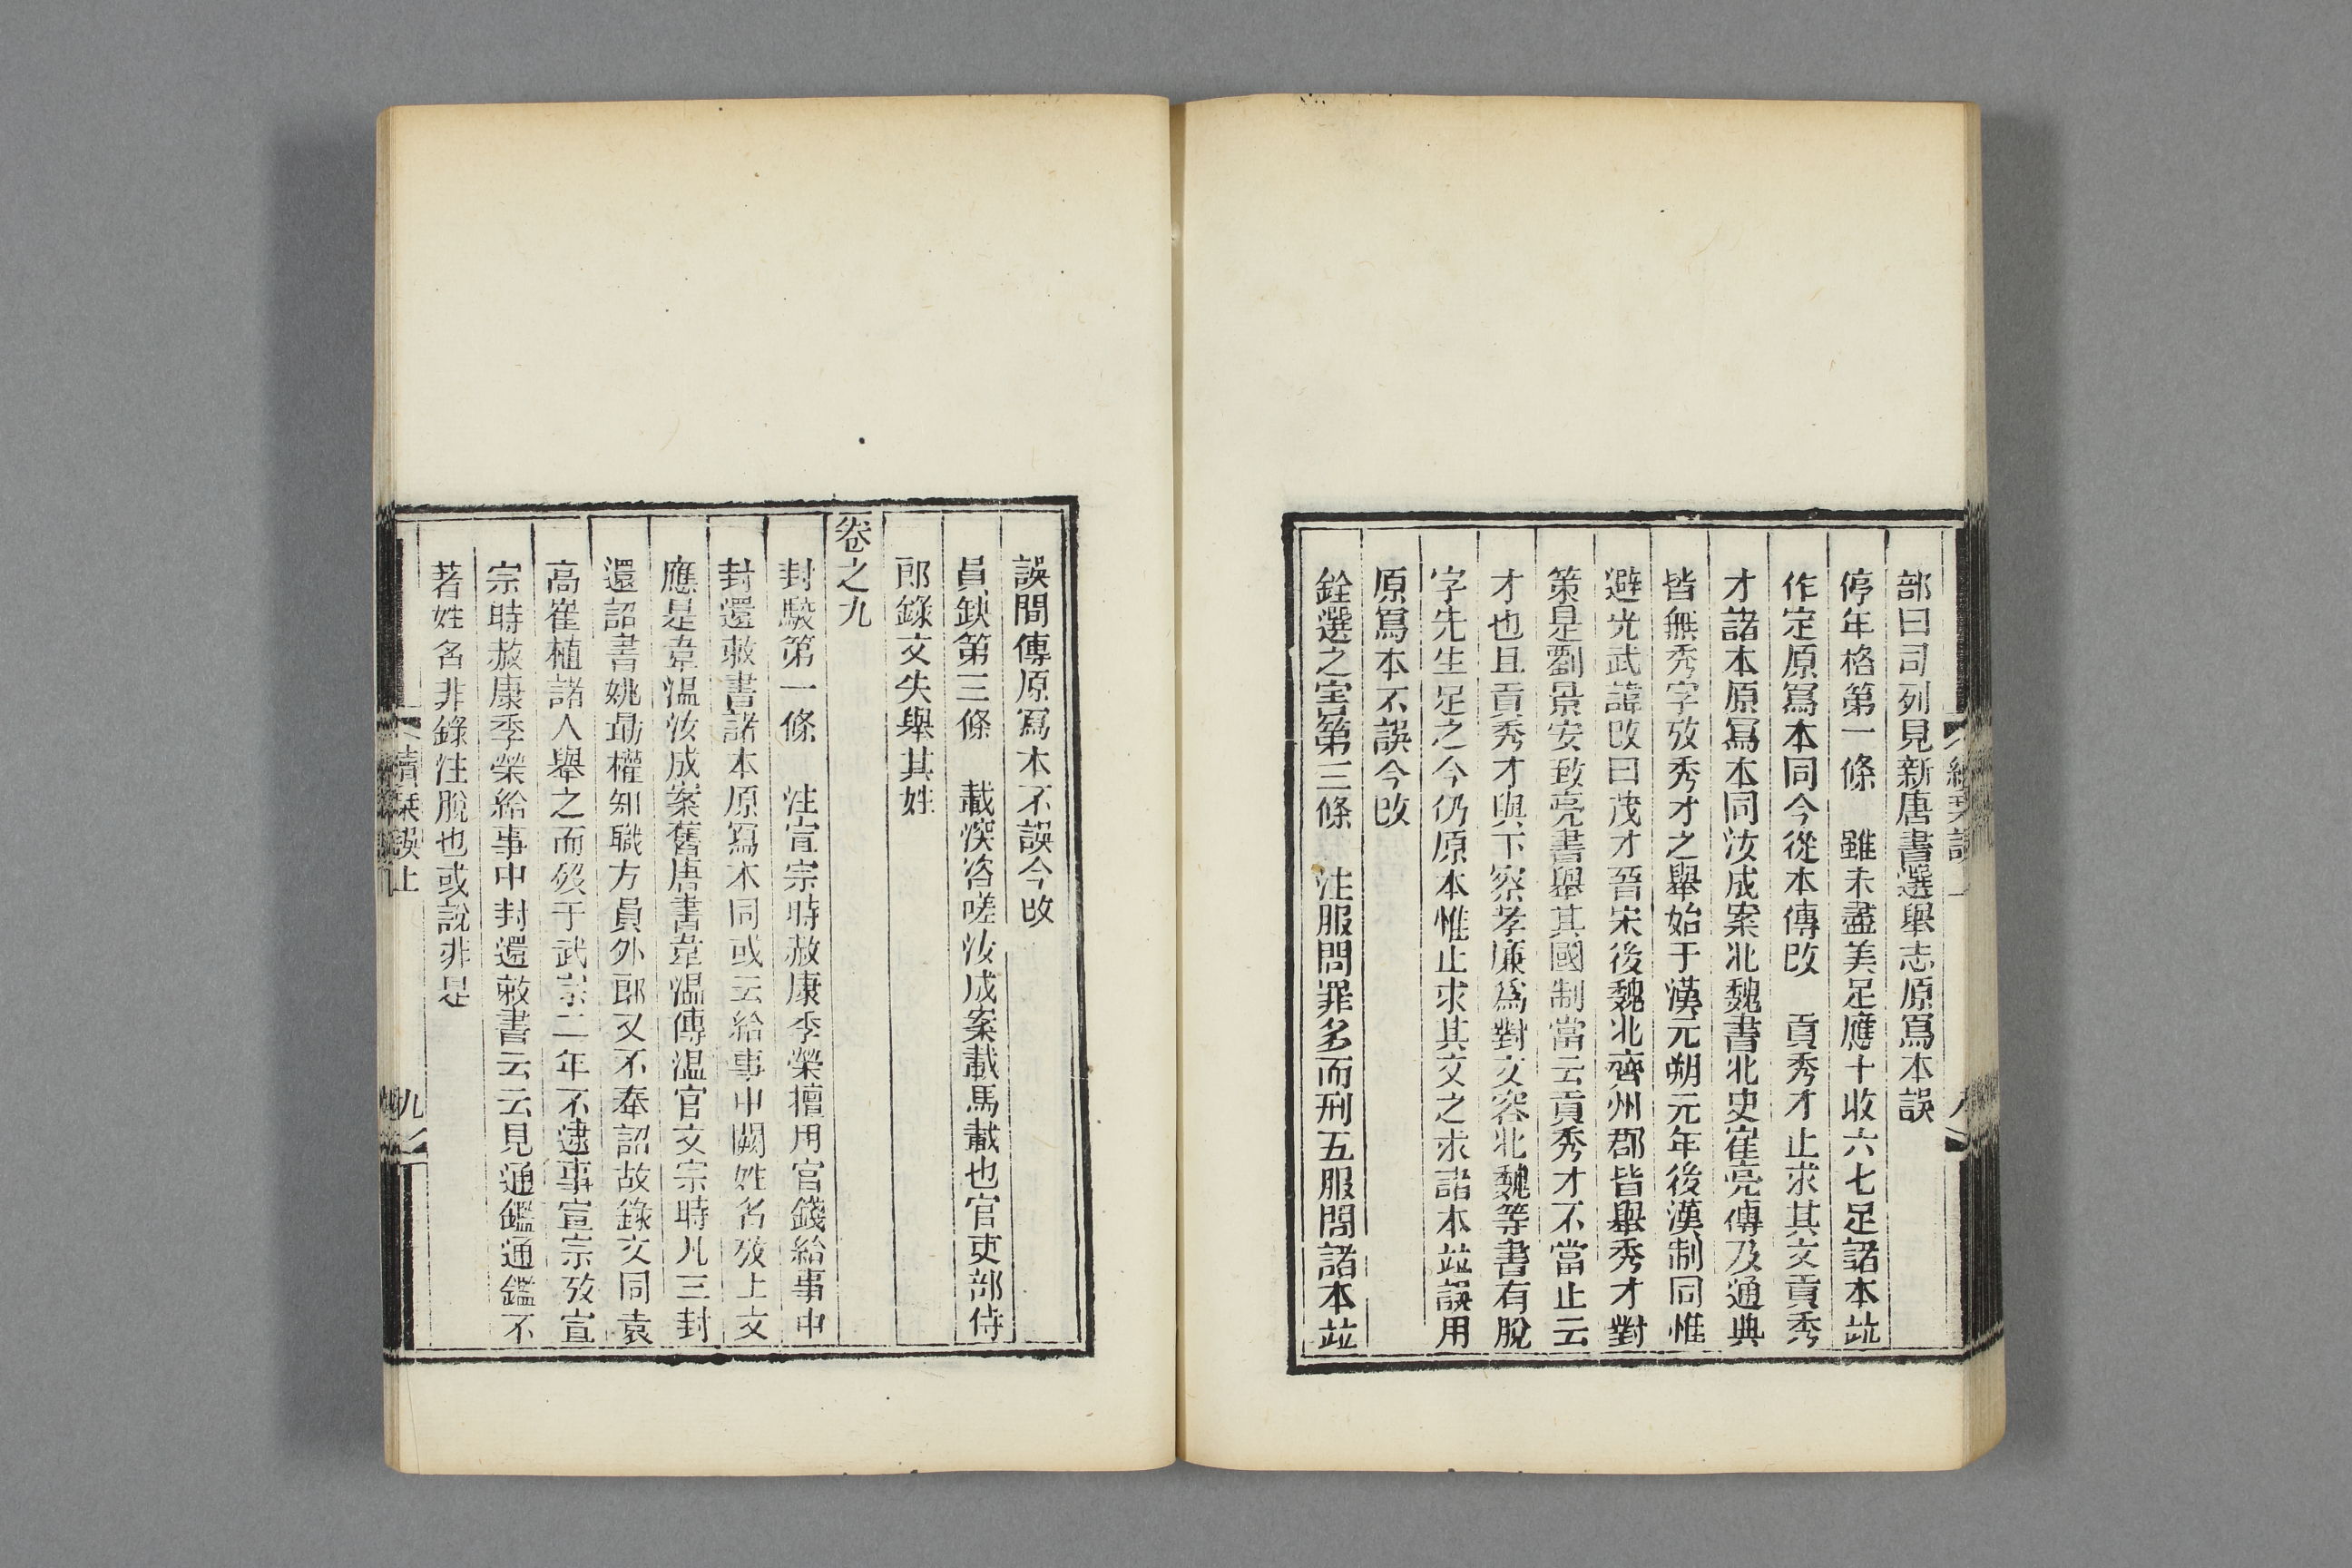 部曰司列見新唐書選舉志原寫本誤
停年格第一條　雖未盡美足應十收六七足諸本竝
作定原寫本同今從本傳改　貢秀才止求其文貢秀
才諸本原寫本同汝成案北魏書北史崔亮傳及通典
皆無秀字攷秀才之舉始于漢元朔元年後漢制同惟
避光武諱改曰茂才晉宋後魏北齊州郡皆舉秀才對
策是劉景安致亮書舉其國制當云貢秀才不當止云
才也且貢秀才與下察孝廉爲對文容北魏等書有脫
字先生足之今仍原本惟止求其文之求諸本竝誤用
原寫本不誤今改
銓選之害第三條　注服問罪多而刑五服問諸本竝
誤間傳原寫本不誤今改
員缺第三條　載深咨嗟汝成案載馬載也官吏部侍
郎錄文失舉其姓
卷之九
封駮第一條　注宣宗時赦康季榮擅用官錢給事中
封還敕書諸本原寫本同或云給事中闕姓名攷上文
應是韋溫汝成案舊唐書韋溫傳溫官文宗時凡三封
還詔書姚勗權知職方員外郎又不奉詔故錄文同袁
高崔植諸人舉之而歿于武宗二年不逮事宣宗攷宣
宗時赦康季榮給事中封還敕書云云見通鑑通鑑不
著姓名非錄注脫也或說非是
續栞誤上
九